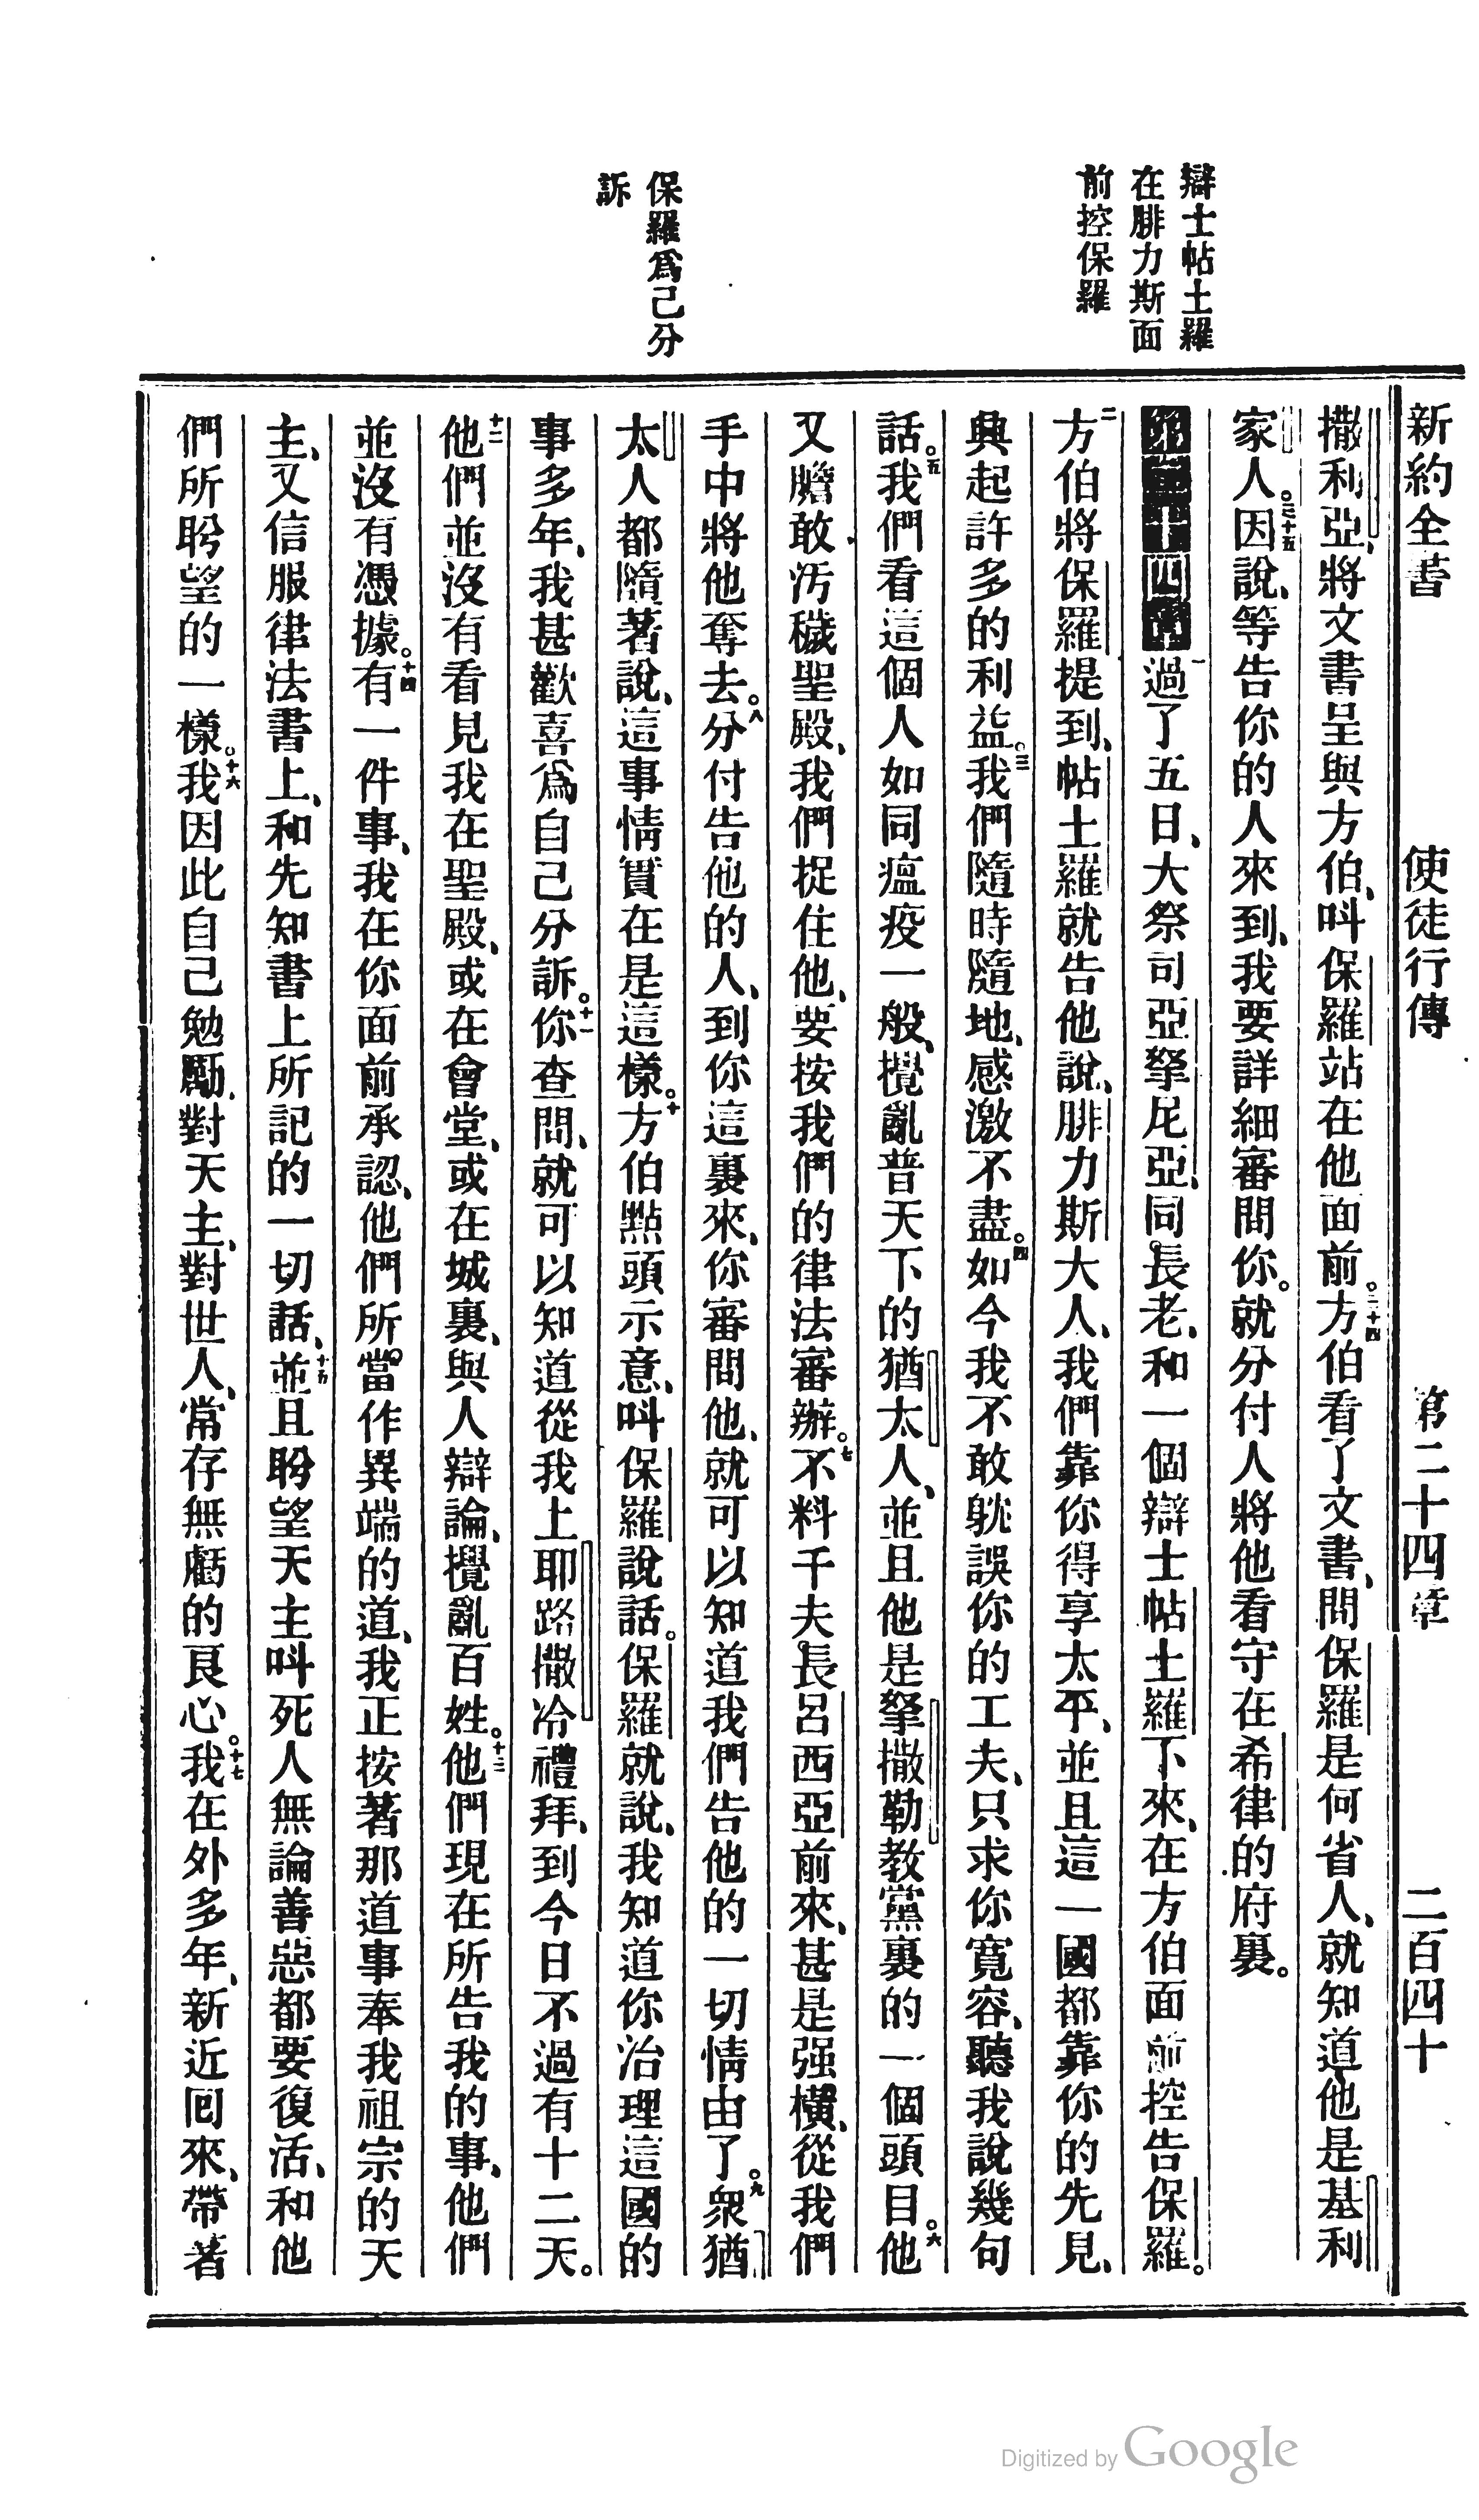 新約全書 使徒行傳 第二十四章 二百四十
辯士帖土羅
在腓力斯面
前控保羅
保羅爲己分
訴
撒利亞、將文書呈與方伯、呌保羅站在他面前。三十四方伯看了文書、問保羅是何省人、就知道他是基利
家人。三十五因說、等告你的人來到、我要詳細審問你。就分付人將他看守在希律的府裏。
第二十四章一過了五日、大祭司亞拏尼亞、同長老、和一個辯士帖土羅下來、在方伯面前控告保羅。
二方伯將保羅提到、帖土羅就告他說、腓力斯大人、我們靠你得享太平、並且這一國都靠你的先見、
興起許多的利益。三我們隨時隨地、感激不盡。四如今我不敢躭誤你的工夫、只求你寬容、聽我說幾句
話。五我們看這個人如同瘟疫一般、攪亂普天下的猶太人、並且他是拏撒勒教黨裏的一個頭目。六他
又膽敢汚穢聖殿、我們捉住他、要按我們的律法審辦。七不料千夫長呂西亞前來、甚是强橫、從我們
手中將他奪去。八分付告他的人、到你這裏來、你審問他、就可以知道我們告他的一切情由了。九衆猶
太人都隨著說、這事情實在是這樣。十方伯點頭示意、呌保羅說話。保羅就說、我知道你治理這國的
事多年、我甚歡喜爲自己分訴。十一你查問、就可以知道從我上耶路撒冷禮拜、到今日不過有十二天。
十二他們並沒有看見我在聖殿、或在會堂、或在城裏、與人辯論、攪亂百姓。十三他們現在所告我的事、他們
並沒有憑據。十四有一件事、我在你面前承認、他們所當作異端的道、我正按著那道事奉我祖宗的天
主、又信服律法書上、和先知書上所記的一切話、十五並且盼望天主呌死人無論善惡都要復活、和他
們所盼望的一樣。十六我因此自己勉勵、對天主、對世人、常存無虧的良心。十七我在外多年、新近回來、帶著
Digitized by Google